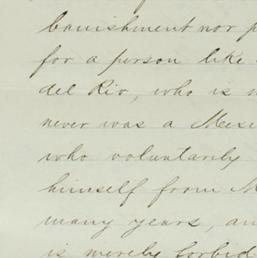 banishment nor p
for a person like
del Rio, who is n
never was a Mexi
who voluntarily
himself from M
many years, an
is merely forbid